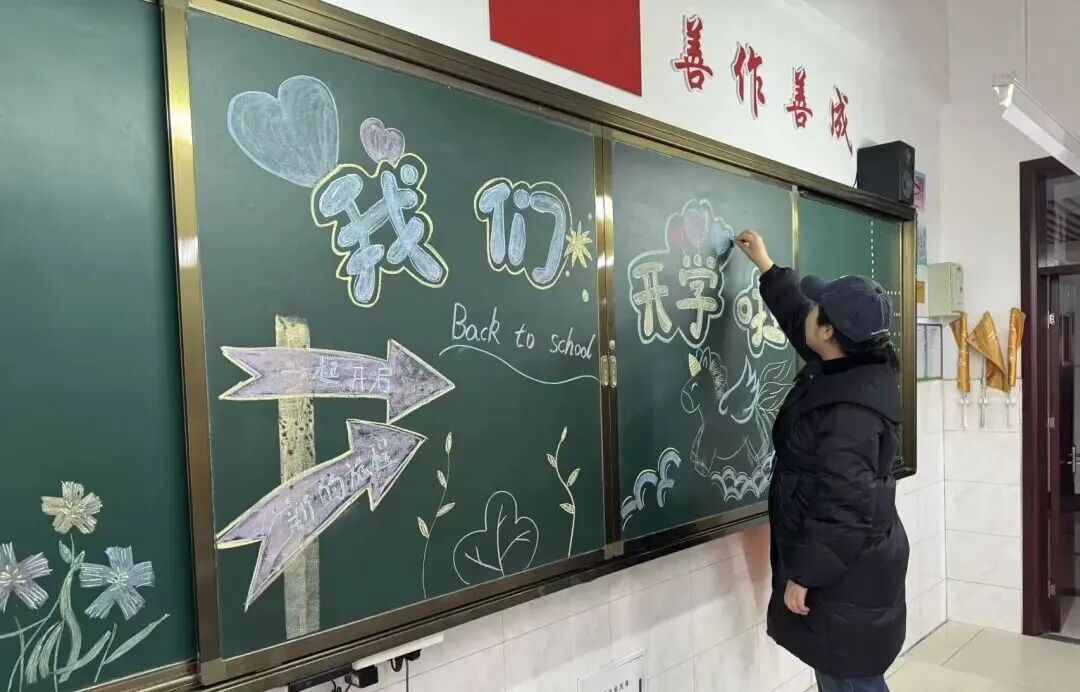 善作善成
我们
开学啦
Back to school
一起开启
新的旅程